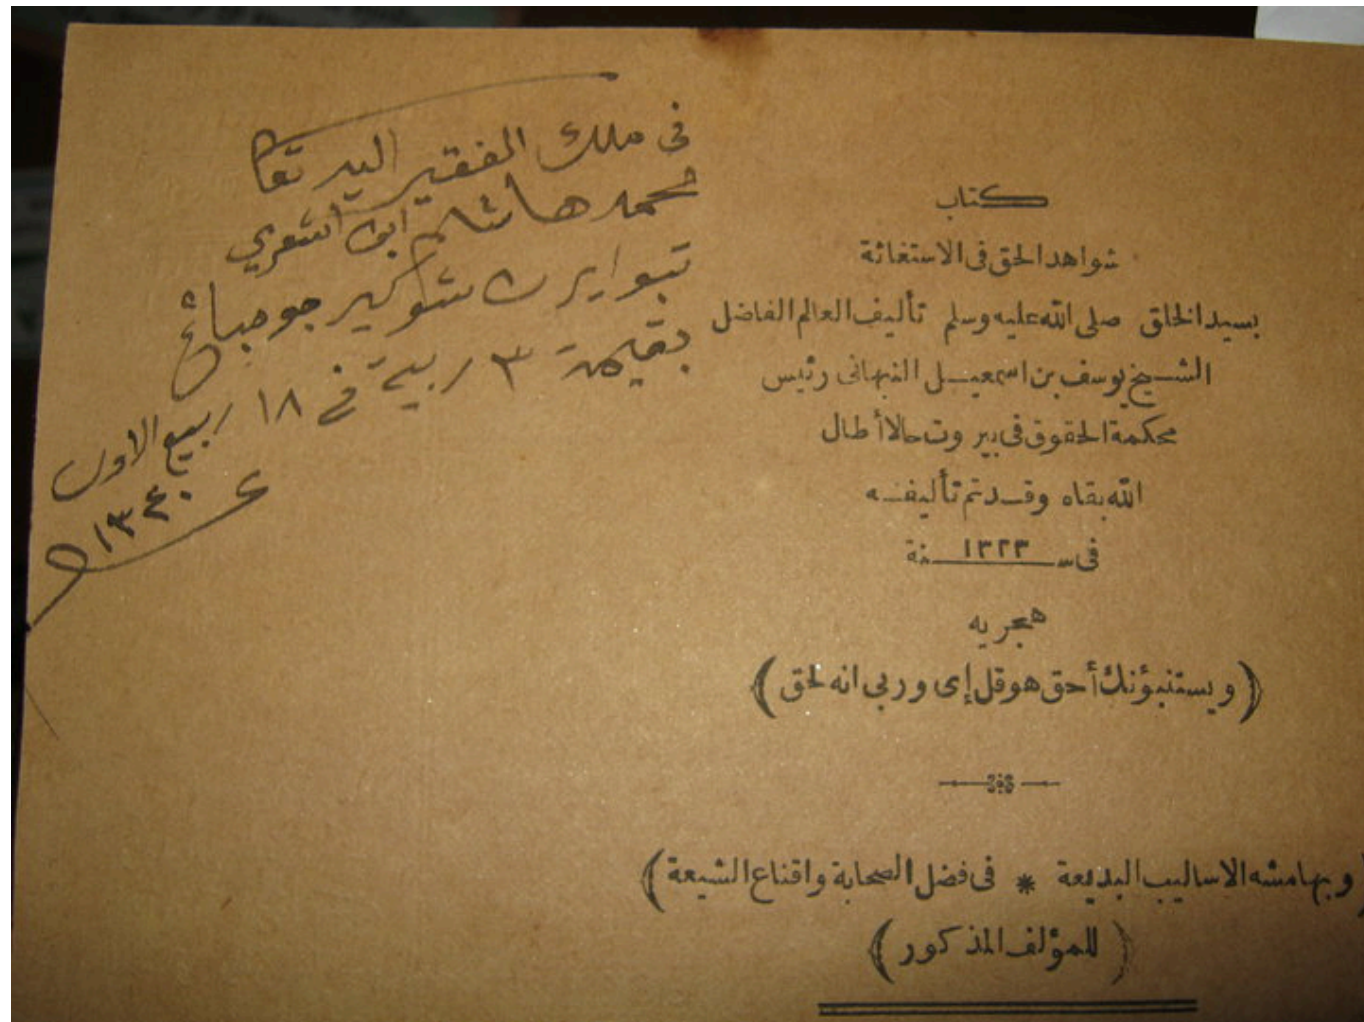 فى ملك الفقير اليه تعالى
محمد هاشم ابن اشعري
تبوايرڠ شوكير جومباڠ
بقيمة ٣ ربية في ١٨ ربيع الاول
١٣٤٠
كتاب
شواهد الحق فى الاستغاثة
بسيد الخلق صلى الله عليه وسلم تأليف العالم الفاضل
الشيخ يوسف بن اسمعيل النبهانى رئيس
محكمة الحقوق فى بيروت حالا أطال
الله بقاه وقد تم تأليفه
فى سنة ١٣٢٣
هجريه
(ويستنبؤنك أحق هو قل إى وربى انه لحق)
(وبهامشه الاساليب البديعة * فى فضل الصحابة واقناع الشيعة)
(للمؤلف المذكور)